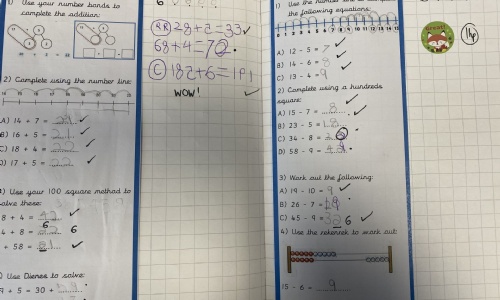 1) Use your number bonds to
complete the addition:
2) Complete using the number line:
A) 14 + 7 = 21
B) 16 + 5 = 21
C) 18 + 4 = 22
D) 17 + 5 = 22
Use your 100 square method to
solve these:
8 + 4 = 42
4 + 8 =
+ 58 = 81
Use Dienes to solve:
9 + 5 = 30 +
28+5=33
68+4=72
C 185+6=191
WOW!
1) Use the number line to
the following equations:
A) 12 - 5 = 7
B) 14 - 6 = 8
C) 13 - 4 = 9
2) Complete using a hundreds
square:
A) 15 - 7 = 8
B) 23 - 5 = 18
C) 34 - 8 =
D) 58 - 9 = 49
3) Work out the following:
A) 19 - 10 = 9
B) 26 - 7 = 19
C) 45 - 9 = 6
4) Use the rekenrek to work out
15 - 6 = 9